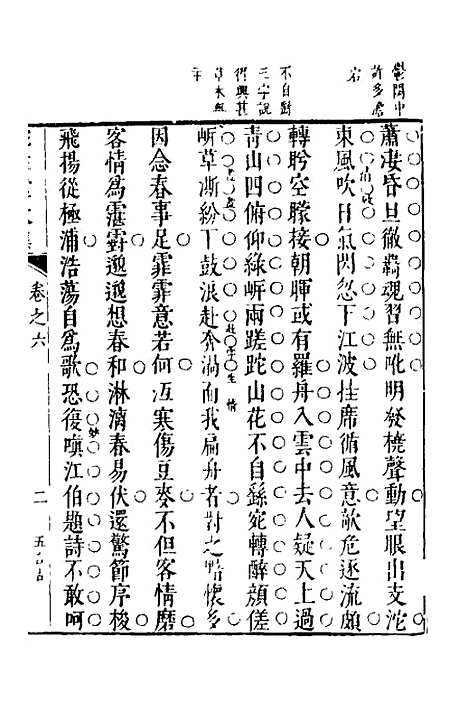 鬱悶中
許多
宕
不自繇
三字說
得與甚
草木無
幸
蕭凄昏旦徹羈魂習無吪明發橈聲動望眼出支沱
東風吹日氣閃忽下江波挂席循風意歊危逐流頗
轉盻空矇接朝暉或有羅舟入雲中去人疑天上過
青山四俯仰綠㟁兩蹉跎山花不自繇宛轉醉顔傞
㟁草漸紛下鼓浪赴奔渦而我扁舟者對之暗懷多
因念春事足霏霏意若何冱寒傷豆麥不但客情磨
客情爲霑霨遞遞想春和淋漓春易伏還驚節序梭
飛楊從極浦浩蕩自爲歌恐復嗔江伯題詩不敢呵
清波
妙
生情
卷之六
二
五